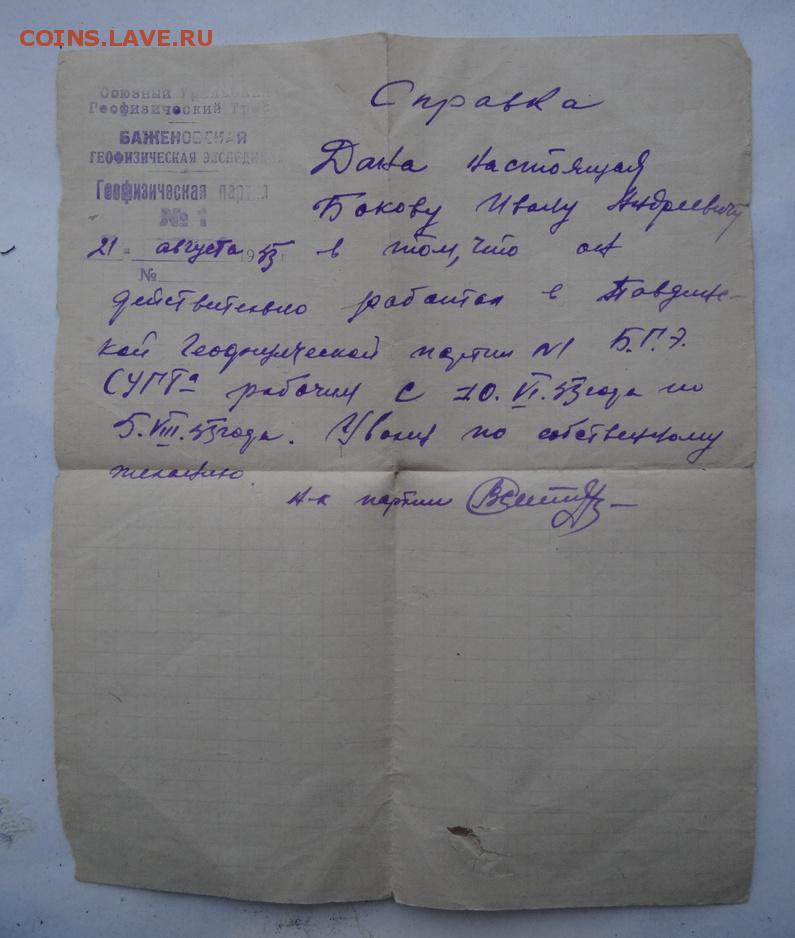 COINS.LAVE.RU
Союзный Уральский
Геофизический Трест
БАЖЕНОВСКАЯ
ГЕОФИЗИЧЕСКАЯ ЭКСПЕДИЦИЯ
Геофизическая партия
№ 1
21 августа 1953 г
№
Справка
Дана настоящая
Бокову Ивану Андреевичу
в том, что он
действительно работал в Павдинс-
кой Геофизической партии №1 Б.Г.Э.
СУГТа рабочим с 10.VI.53 года по
5.VIII.53 года. Уволен по собственному
желанию.
Н-к партии